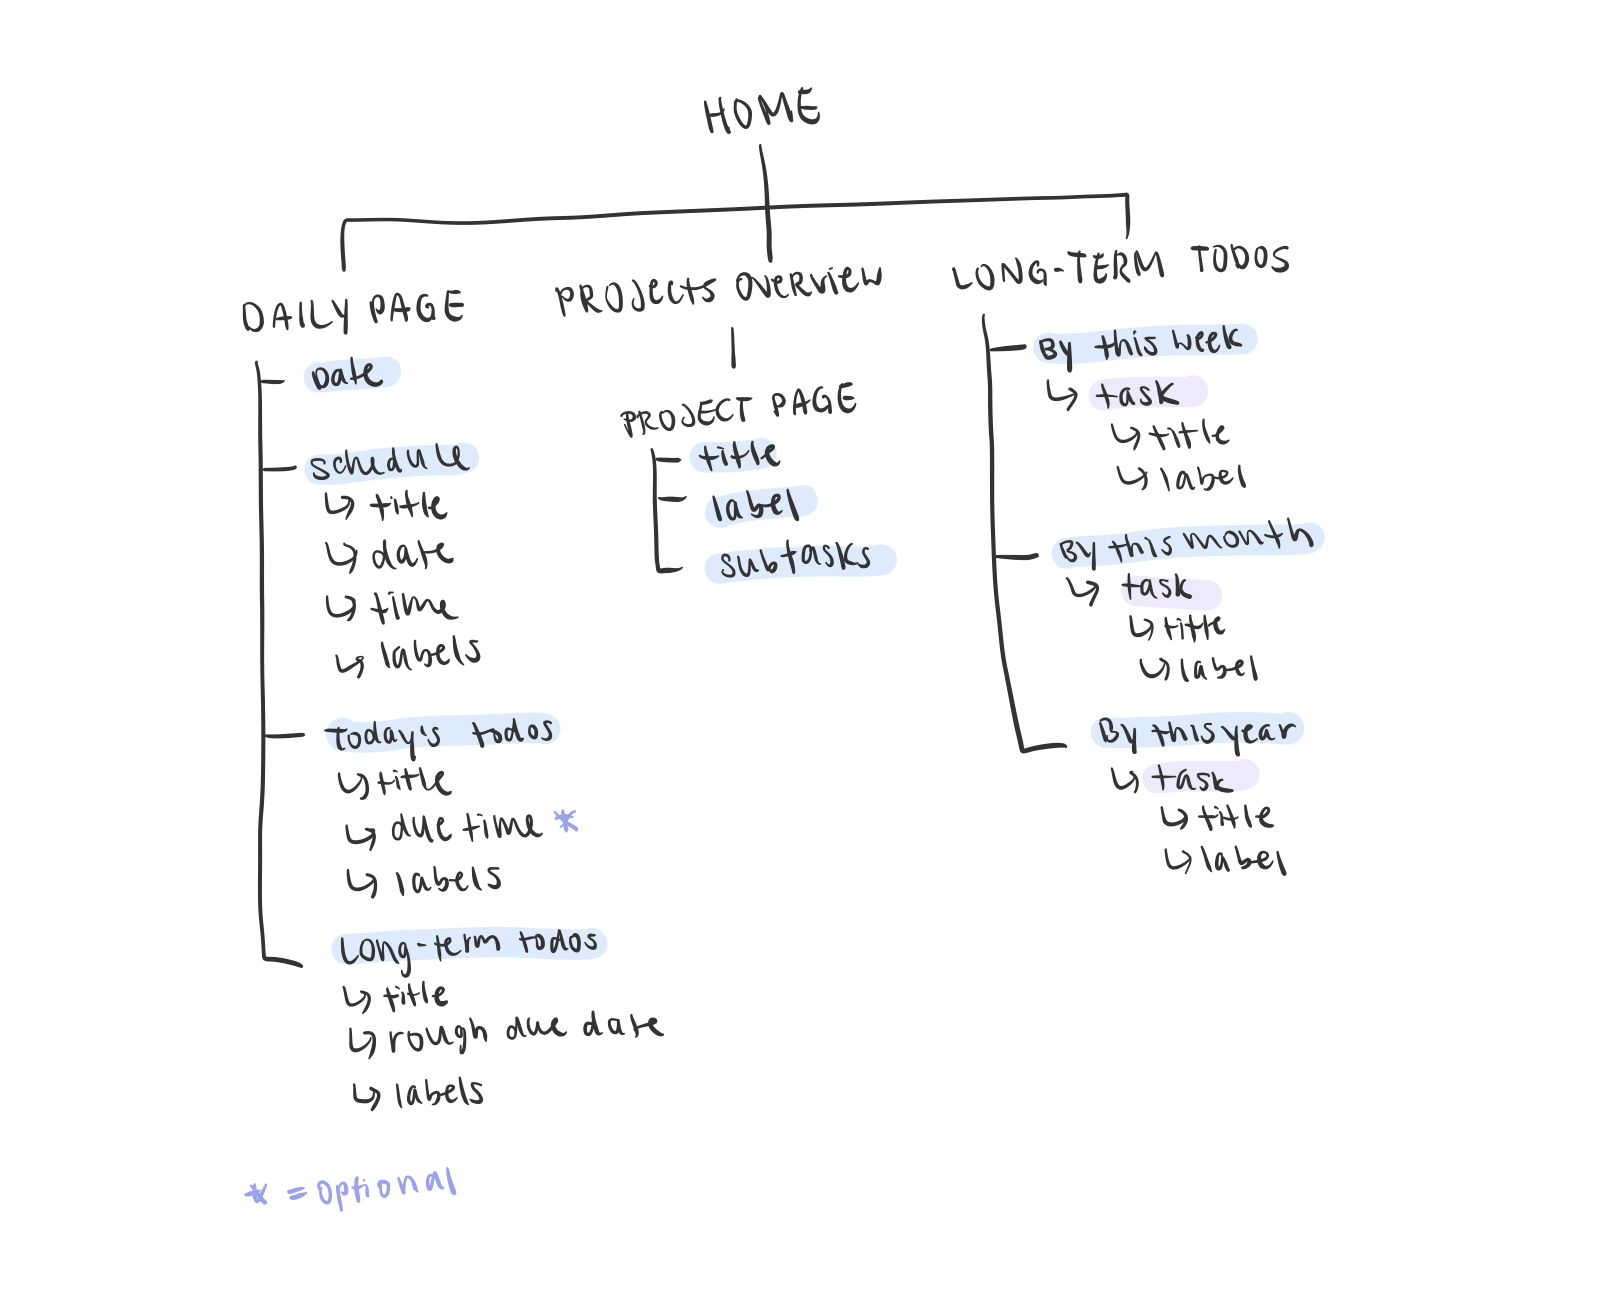 HOME
DAILY PAGE
Date
schedule
↳ title
↳ date
↳ time
↳ labels
Today's todos
↳ title
↳ due time *
↳ labels
Long-term todos
↳ title
↳ rough due date
↳ labels
* = optional
PROJECTS OVERVIEW
PROJECT PAGE
title
label
subtasks
LONG-TERM TODOS
By this week
↳ task
↳ title
↳ label
By this month
↳ task
↳ title
↳ label
By this year
↳ task
↳ title
↳ label